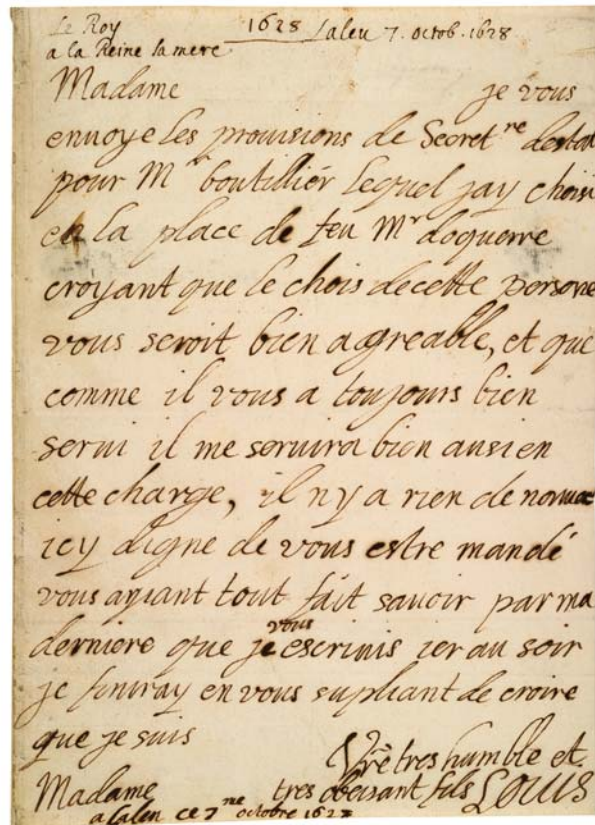 Le Roy 1628 Laleu 7. octob. 1628
a la Reine sa mere
Madame je vous
envoye les provisions de Secret^re destat
pour M^r boutillier lequel jay choisi
en la place de feu M^r doquerre
croyant que le chois de cette persone
vous seroit bien agreable, et que
comme il vous a toujours bien
servi il me servira bien ausi en
cette charge, il ny a rien de nouveau
icy digne de vous estre mandé
vous ayant tout fait savoir par ma
derniere que je vous escrivis ier au soir
je finiray en vous supliant de croire
que je suis
Vre tres humble et
Madame tres obeisant fils LOUIS
a Laleu ce 7^me octobre 1628